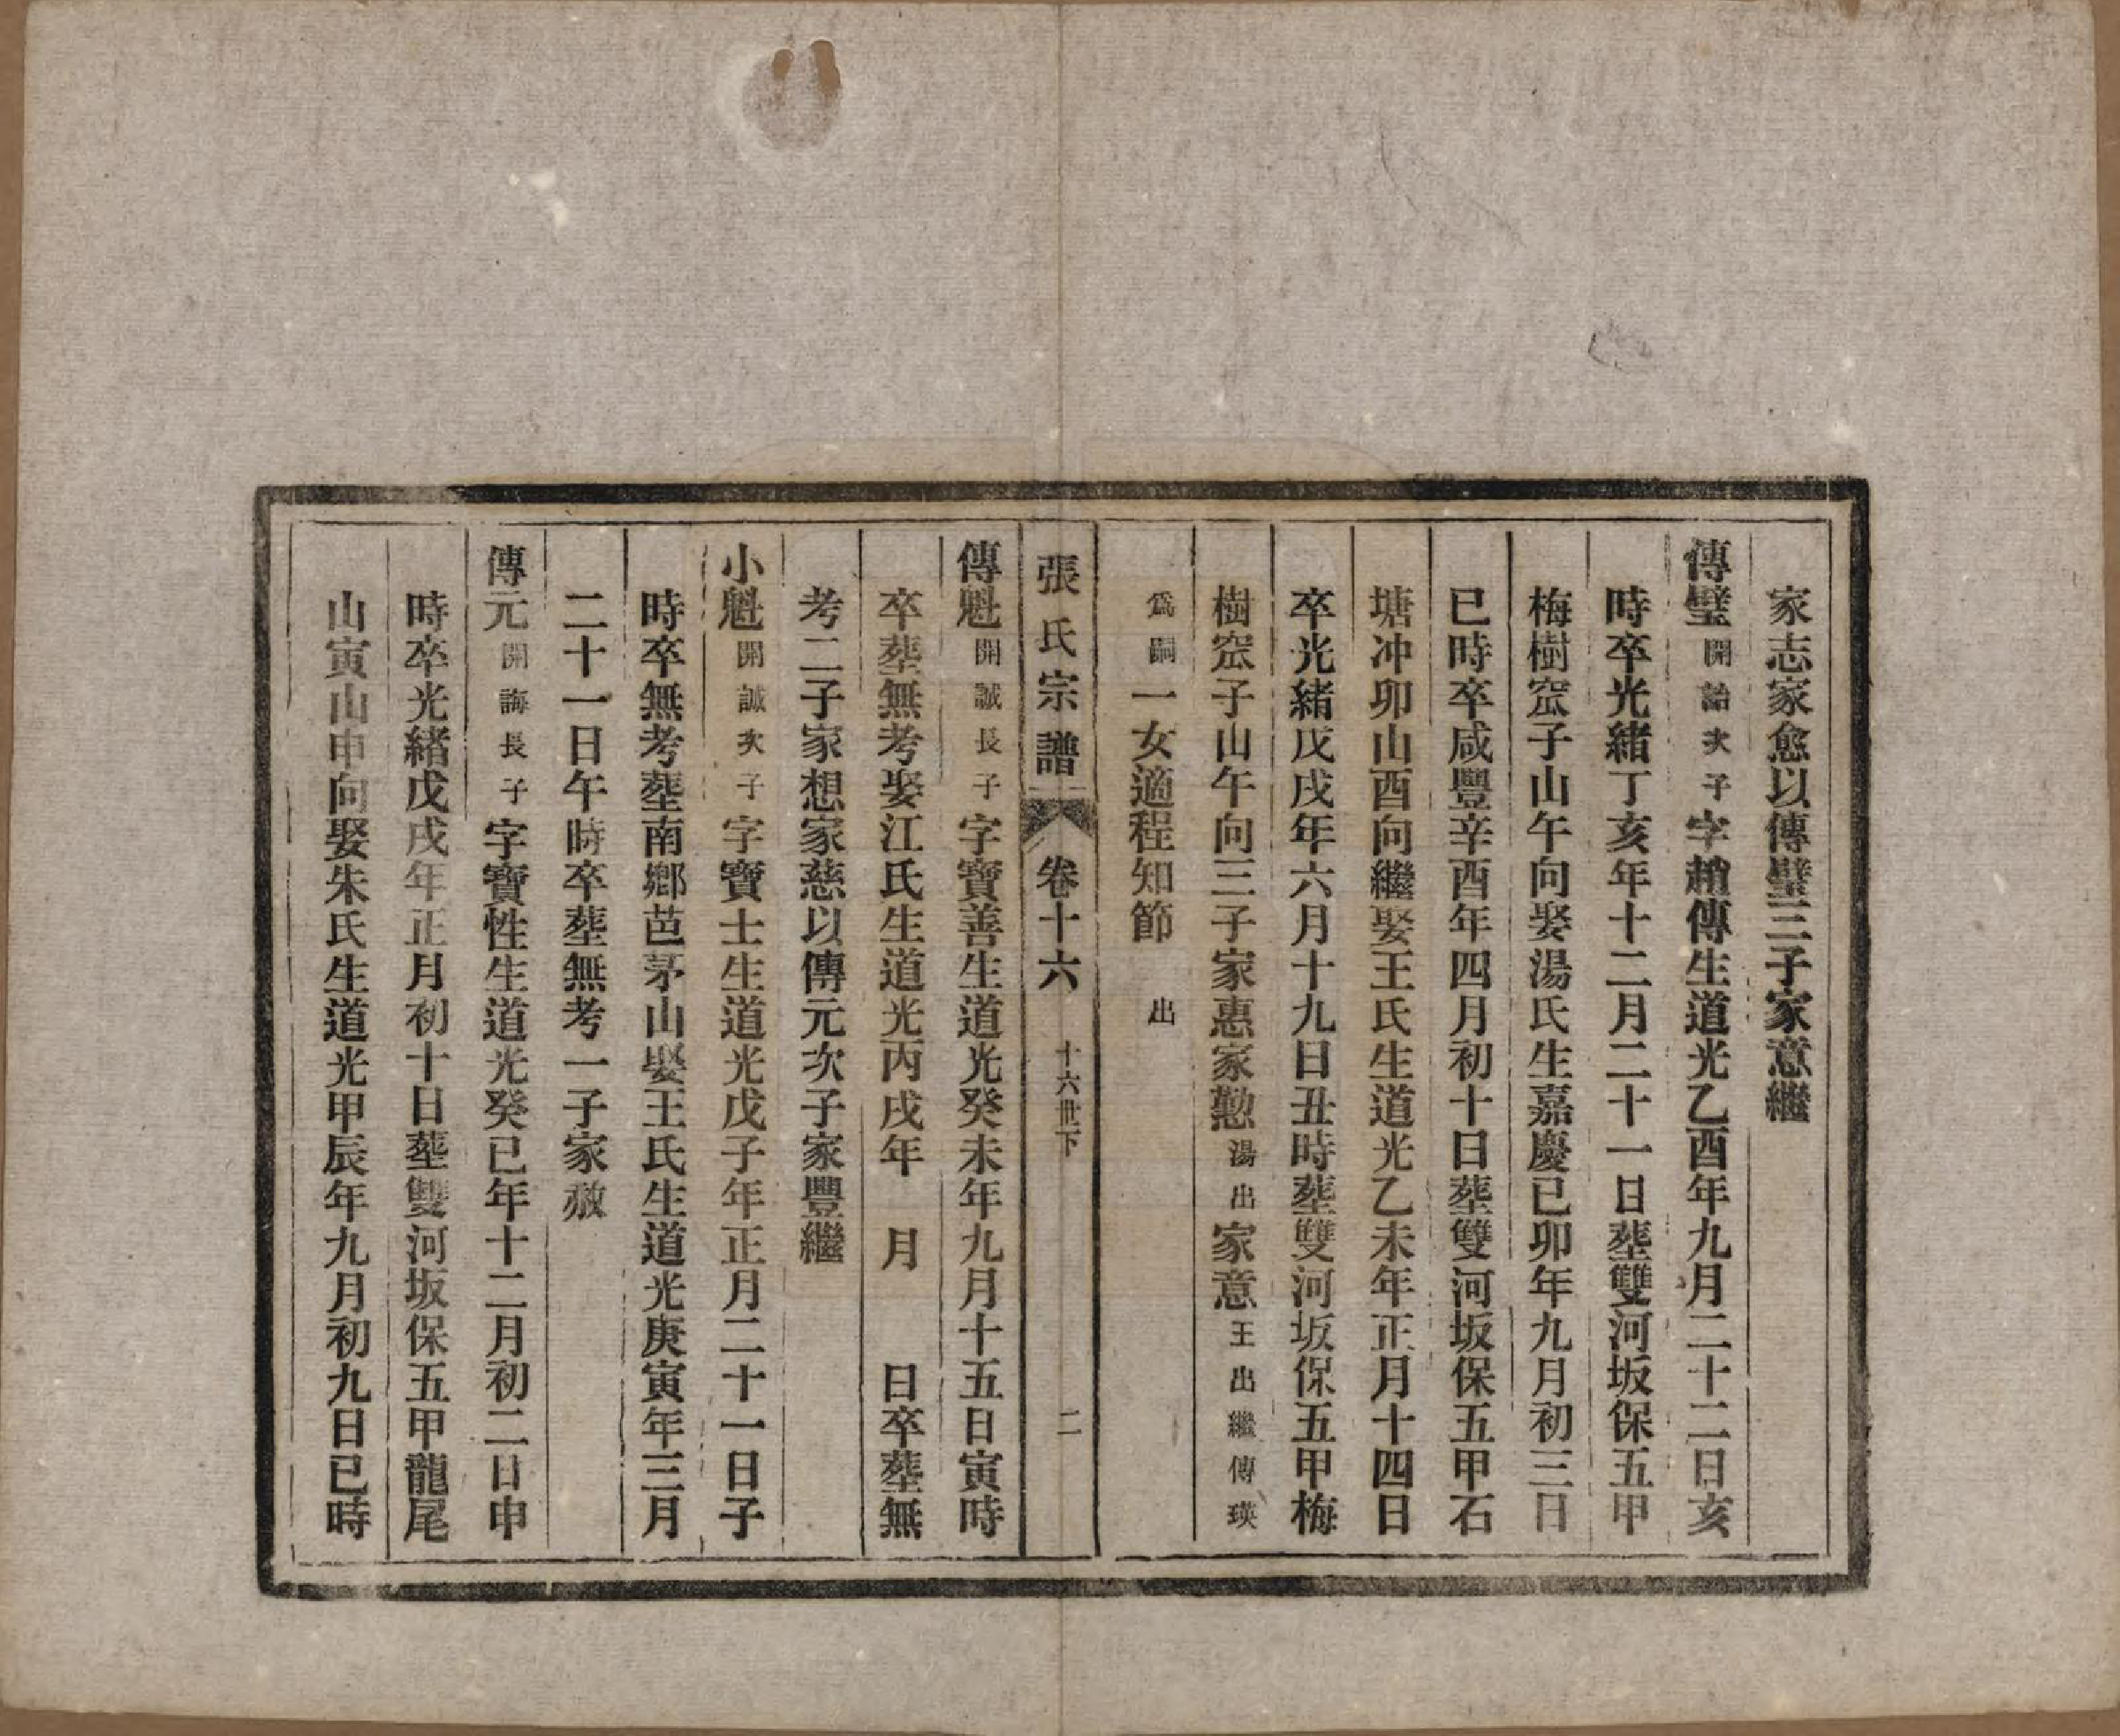 家志家愈以傳璧三子家意繼
傳璧開詒次子字趙傳生道光乙酉年九月二十二日亥
時卒光緒丁亥年十二月二十一日塟雙河坂保五甲
梅樹窊子山午向娶湯氏生嘉慶己卯年九月初三日
巳時卒咸豐辛酉年四月初十日塟雙河坂保五甲石
塘冲卯山酉向繼娶王氏生道光乙未年正月十四日
卒光緒戊戌年六月十九日丑時塟雙河坂保五甲梅
樹窊子山午向三子家惠家懃湯出家意王出繼傳瑛
爲嗣一女適程知節　出
張氏宗譜　卷十六　十六世下　二
傳魁開誠長子字寶善生道光癸未年九月十五日寅時
卒塟無考娶江氏生道光丙戌年　月　日卒塟無
考二子家想家慈以傳元次子家豐繼
小魁開誠次子字寶士生道光戊子年正月二十一日子
時卒無考塟南鄉芭茅山娶王氏生道光庚寅年三月
二十一日午時卒塟無考一子家赦
傳元開誨長子字寶性生道光癸巳年十二月初二日申
時卒光緒戊戌年正月初十日塟雙河坂保五甲龍尾
山寅山申向娶朱氏生道光甲辰年九月初九日巳時